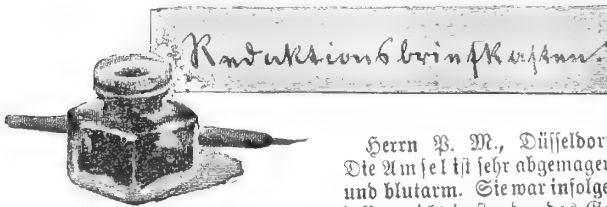 Redaktionsbriefkasten.
Herrn P. M., Düsseldor
Die Amsel ist sehr abgemager
und blutarm. Sie war infolge